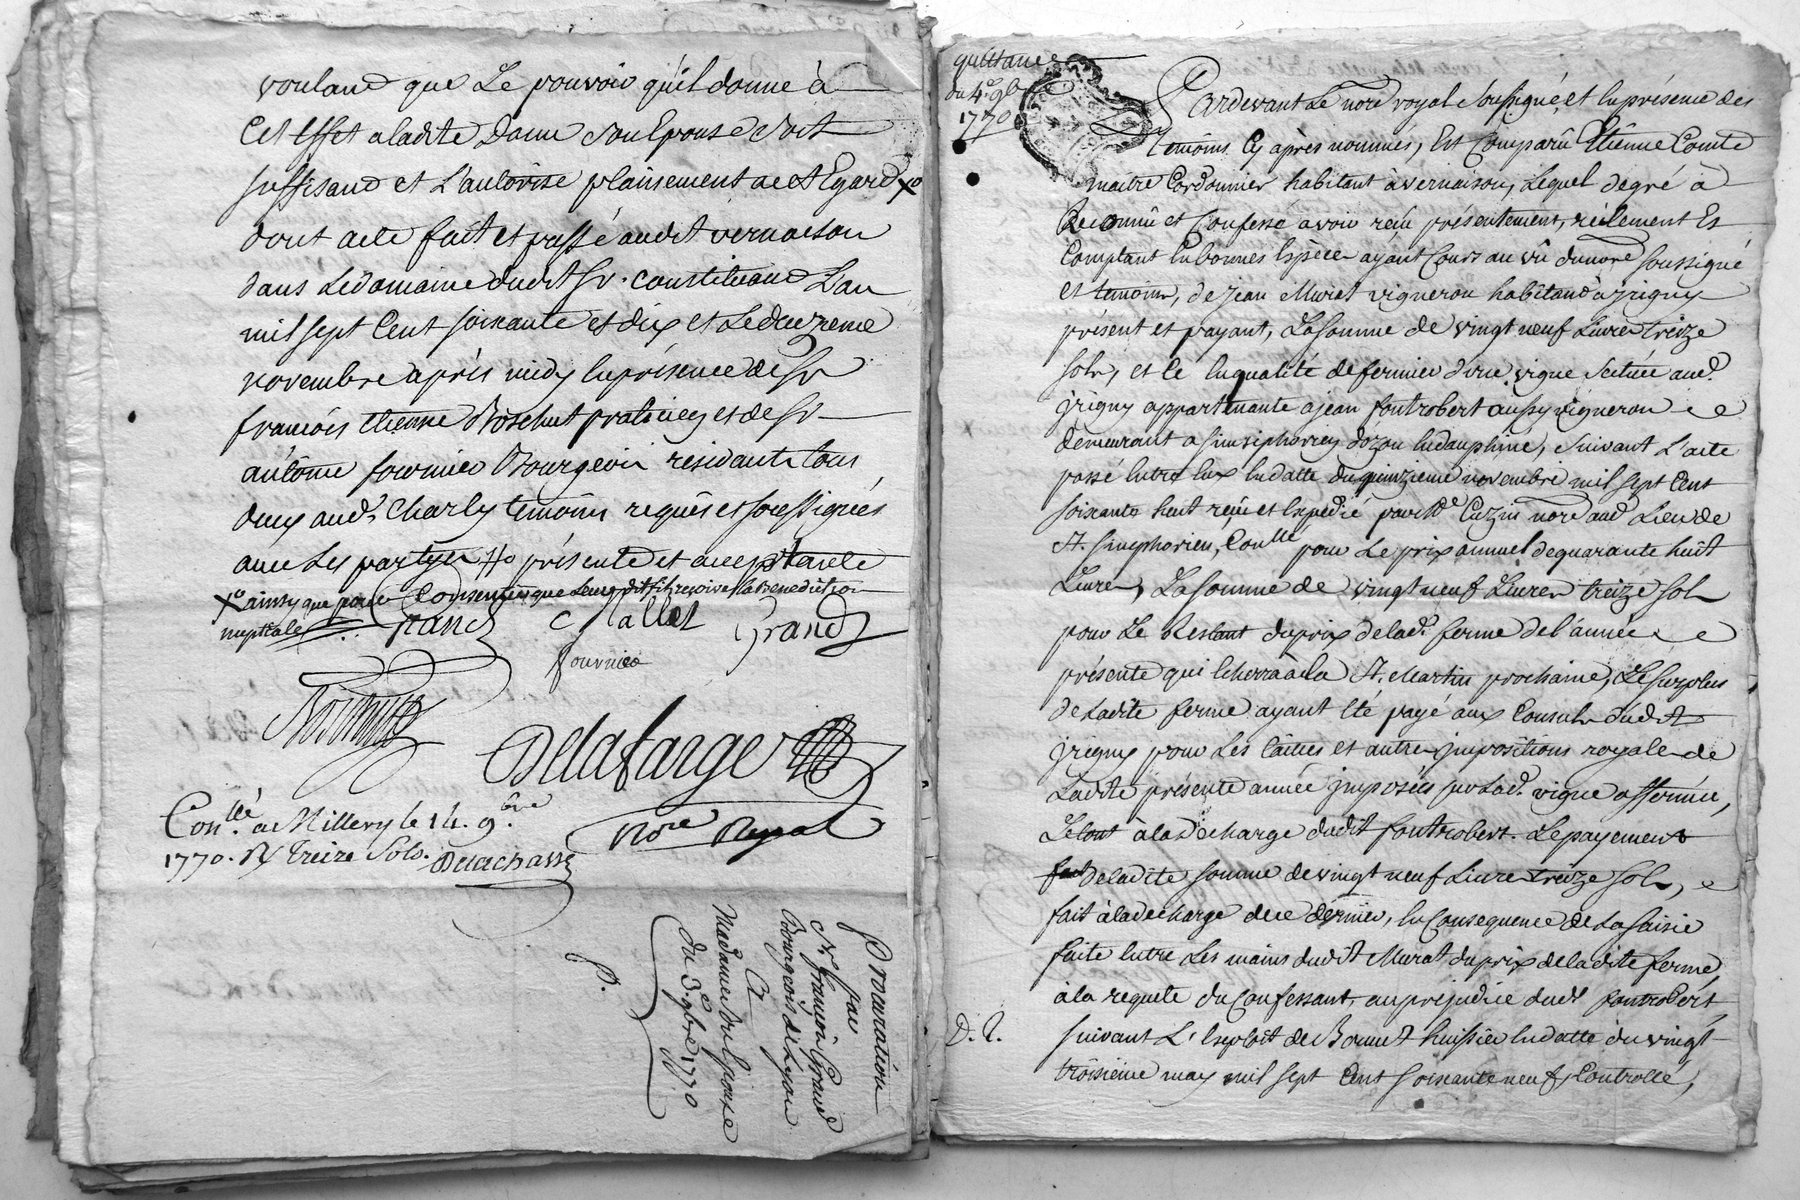 voulant que Le pouvoir qu'il donne à
Cet Effet a ladite Dame Son Epouse Soit
suffisant et L'autorise plainement a cet Egard x°
dont acte fait et passé audit vernaison
dans Le domaine dudit Sr. constituant L'an
mil sept Cent soixante et dix et Le
novembre après midy En présence de Sr
françois Etienne praticien et de Sr
antoine fournier Bourgeois résidants tous
deux aud. Charly témoins requis et soussignés
avec Les partyes #° présente et acceptante
x° ainsy que pour Consentir que Leur dit fils reçoive la Bénédiction
nuptiale
Grand C Mallet Grand
fournier
Delafarge
Nore Royal
Con.llé a Millery le 14. 9.bre
1770. Rx treize Sols. Delachasse
Procuration
par
Sr françois Grand
Bourgeois de Lyon
A
Madame Son Epouse
du 3e 9bre 1770
P.
quittance
du 4e 9b
1770
Pardevant Le nore royal Soussigné et En présence des
témoins Cy après nommés, Est Comparû Etienne Comte
maitre Cordonnier habitant à vernaison, Lequel de gré à
Reconnû et Confessé avoir reçû présentement, réélement Et
Comptant En bonnes Espèces ayant Cours au vû du nore soussigné
et temoins, de jean Murat vigneron habitant a jrigny
présent et payant, La somme de vingt neuf Livres treize
sols, et ce En qualité de fermier d'une vigne Scituée aud.
jrigny appartenante a jean fontrobert aussy vigneron
demeurant a Simsiphorien d'ozon En dauphiné, Suivant L'acte
passé Entre Eux En datte du quinzieme novembre mil sept Cent
soixante huit reçu et Expedié par Me Cuzin nore aud. Lieu de
St. Simphorien, Con.llé pour Le prix annuel de quarante huit
Livres, La somme de vingt neuf Livres treize sols
pour Le Restant du prix de lad. ferme de l'année
présente qui Echerra à la St. Martin prochaine, Le surplus
de Ladite ferme ayant Eté payé aux Consuls dudit
jrigny pour Les tailles et autres jmpositions royale de
Ladite présente année jmposées sur Lad. vigne affermée,
Le tout à la décharge dudit fontrobert. Le payement
de ladite somme de vingt neuf Livres treize sols,
fait à la décharge de ce dernier, En Consequence de La Saisie
faite Entre Les mains dudit Murat du prix de la dite ferme,
à la requete du Confessant, au préjudice dudt fontrobert
D. L.
suivant L'Exploit de Bonnet huissier En datte du vingt
troisième may mil sept Cent soixante neuf, Controllé,